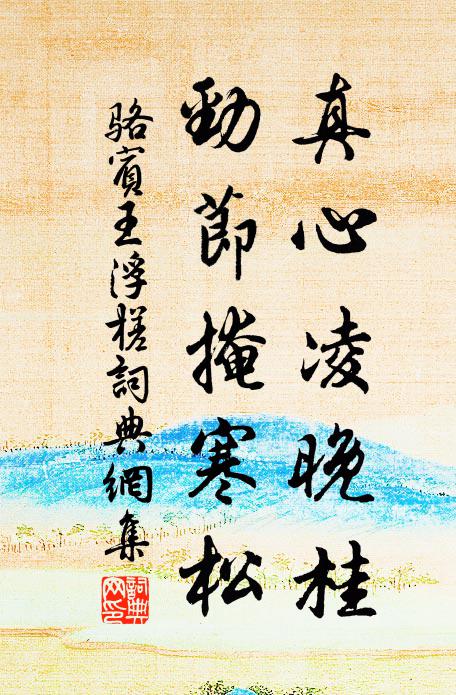 真心凌晚桂
勁節掩寒松
駱賓王浮槎詞典網集
詞典